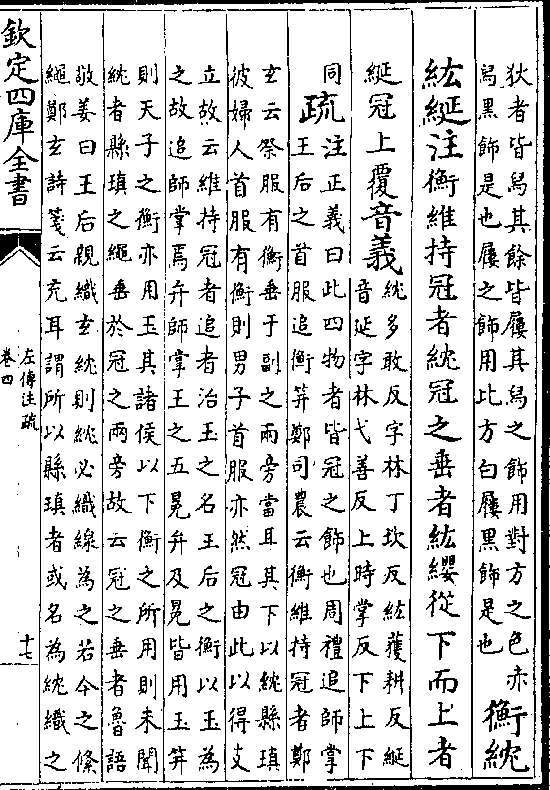 狄者皆舄其餘皆屨其舄之飾用對方之色赤
舄黑飾是也屨之飾用比方白屨黑飾是也
衡紞
紘綖注衡維持冠者紞冠之垂者紘纓從下而上者
綖冠上覆音義
紞多敢反字林丁坎反紘獲耕反綖
音延字林弋善反上時掌反下上下
同
疏
注正義曰此四物者皆冠之飾也周禮追師掌
王后之首服追衡笄鄭司農云衡維持冠者鄭
玄云祭服有衡垂于副之兩旁當耳其下以紞縣瑱
彼婦人首服有衡則男子首服亦然冠由此以得支
立故云維持冠者追者治玉之名王后之衡以玉為
之故追師掌焉弁師掌王之五冕弁及冕皆用玉笄
則天子之衡亦用玉其諸侯以下衡之所用則未聞
紞者縣瑱之繩垂於冠之兩旁故云冠之垂者魯語
敬姜曰王后親織玄紞則紞必織線為之若今之絛
繩鄭玄詩箋云充耳謂所以縣瑱者或名為紞織之
欽定四庫全書
左傳注疏
卷四
十七